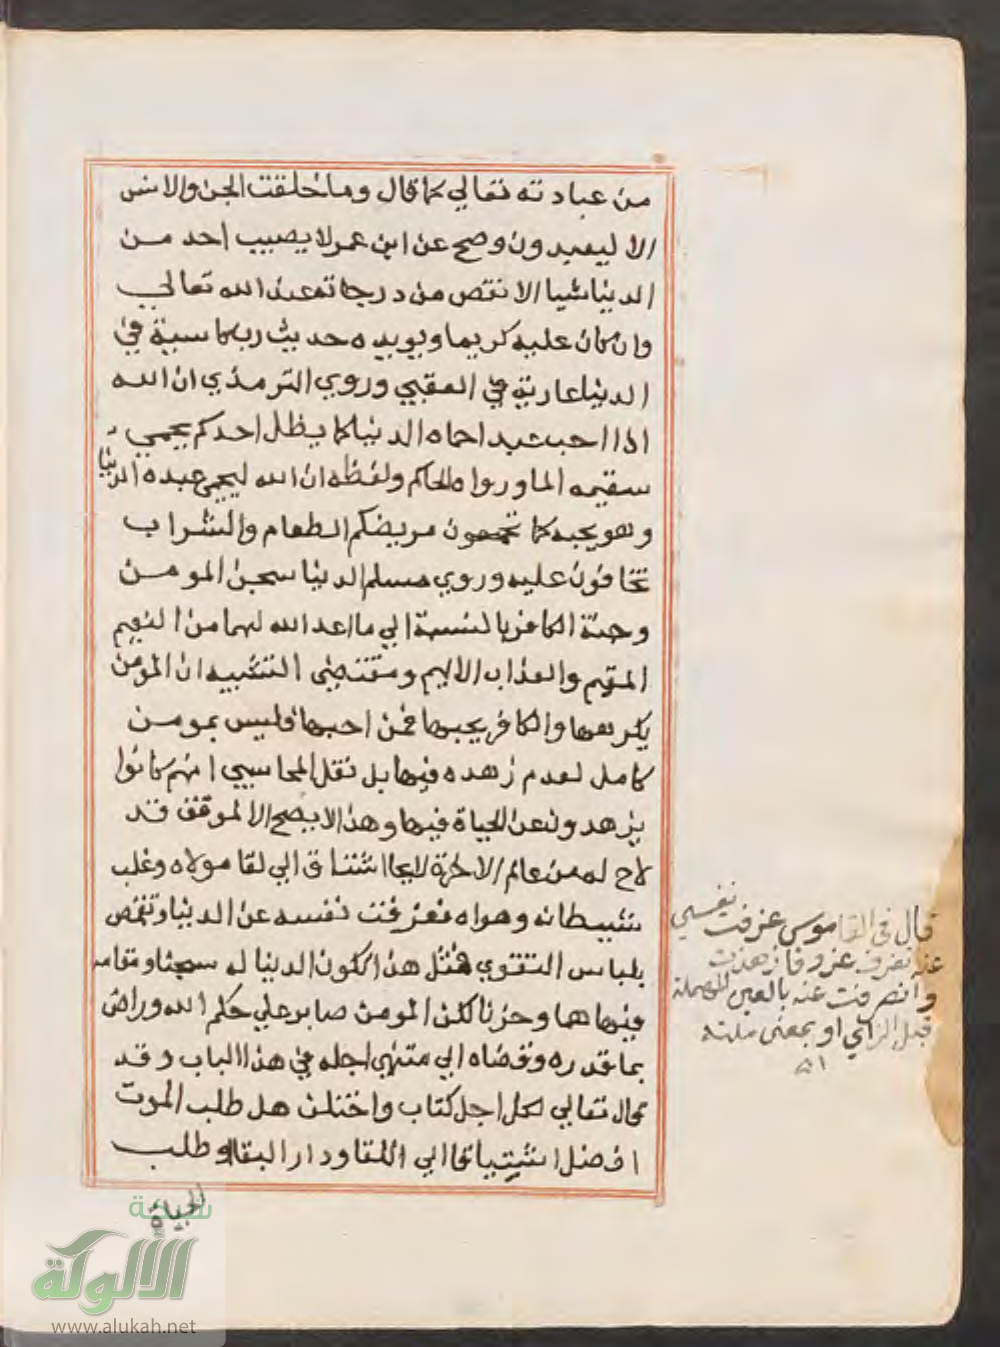 من عبادته تعالي كما قال وما خلقت الجن والانس
الا ليعبدون وصح عن ابن عمر لا يصيب احد من
الدنيا شيا الا نقص من درجاته عند الله تعالي
وان كان عليه كريما ويويده حديث رب كاسية في
الدنيا عارية في العقبي وروي الترمذي ان الله
اذا احب عبدا حماه الدنيا كما يظل احدكم يحمي
سقيمه الما ورواه الحاكم ولفظه ان الله ليحمي عبده الدنيا
وهو يحبه كما تحمون مريضكم الطعام والشراب
تخافون عليه وروي مسلم الدنيا سجن المومن
وجنة الكافر بالنسبة الي ما اعد الله لهما من النعيم
المقيم والعذاب الاليم ومقتضي التشبيه ان المومن
يكرهها والكافر يحبها فمن احبها فليس بمومن
كامل لعدم زهده فيها بل نقل المحاسبي انهم كانوا
يزهدون عن الحياة فيها وهذا لا يصح الا لموفق قد
لاح له من عالم الاخرة لايحا اشتاق الي لقا مولاه وغلب
شيطانه وهواه فعزفت نفسه عن الدنيا وتقمص
بلباس التقوي فمثل هذا تكون الدنيا له سجنا ومقامه
فيها هما وحزنا لكن المومن صابر علي حكم الله وراض
بما قدره وقضاه الي منتهي اجله في هذا الباب وقد
قال تعالي لكل اجل كتاب واختلف هل طلب الموت
افضل اشتياقا الي اللقا ودار البقا او طلب
الحياة
قال في القاموس عزفت نفسي
عنه تعزف عزوفا زهدت
وانصرفت عنه بالعين المهملة
قبل الزاي او بمعني ملته
اه
شبكة
الألوكة
www.alukah.net